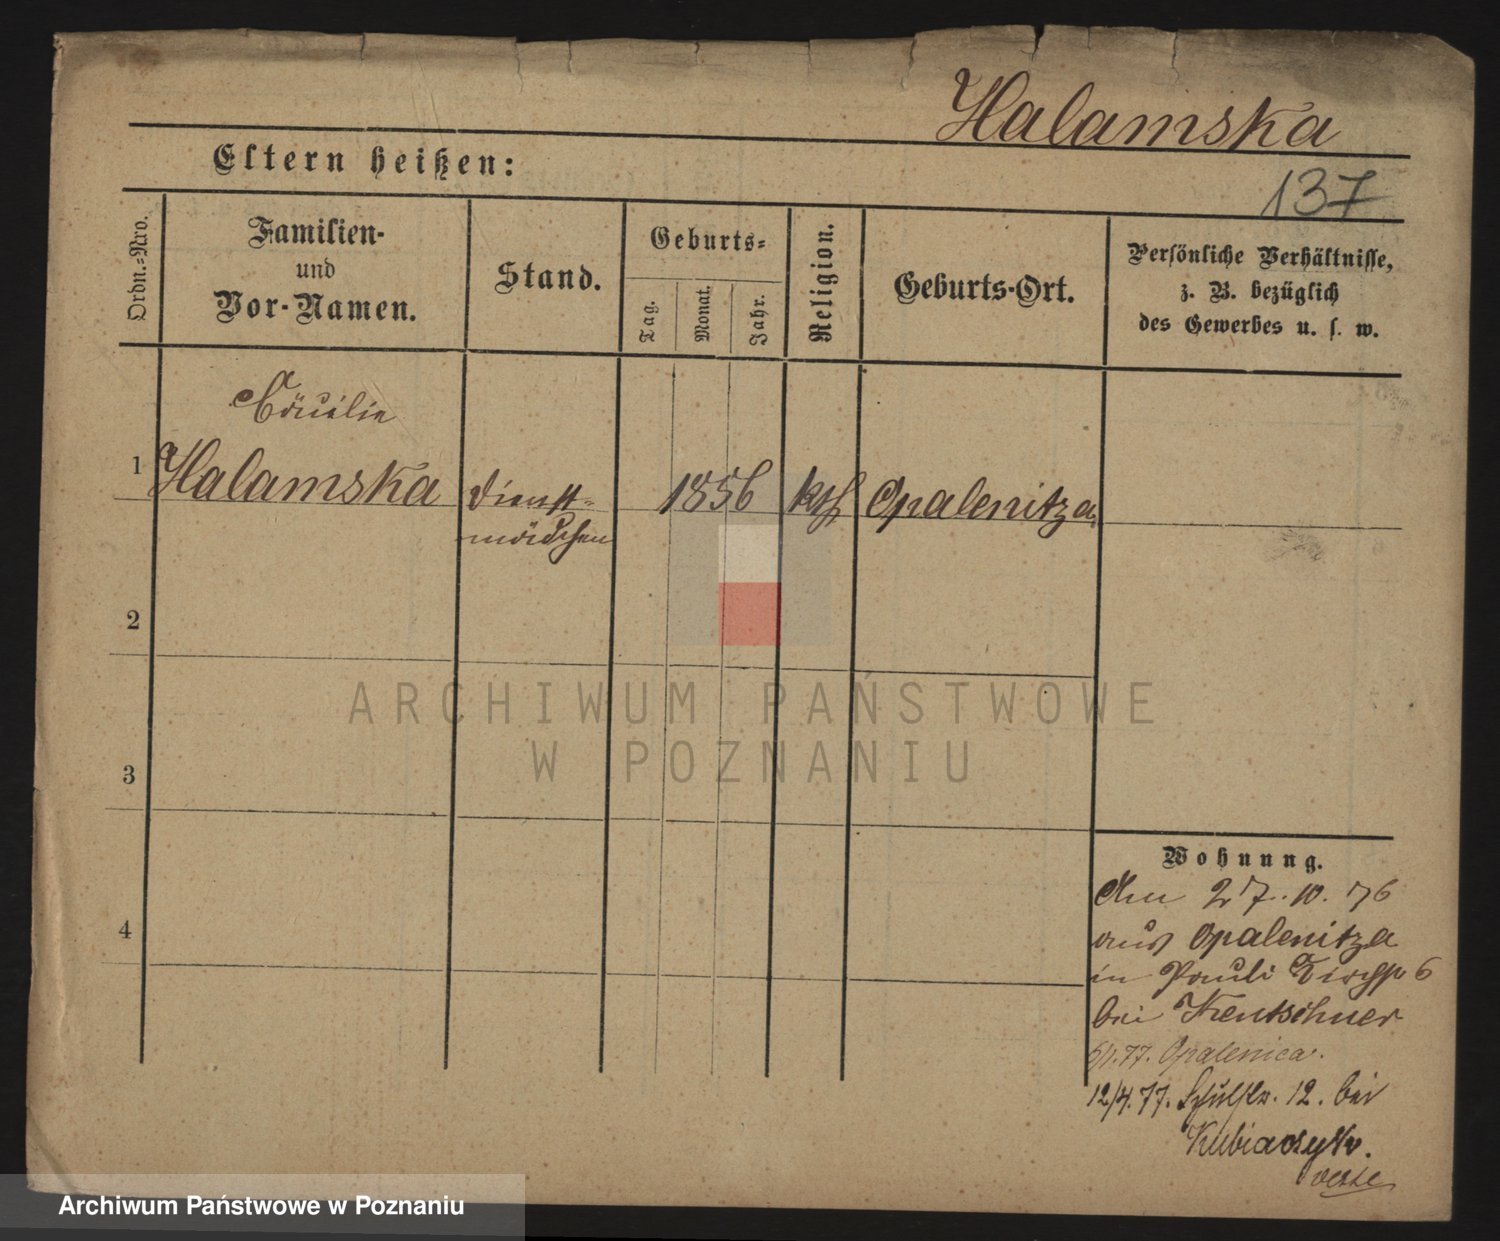 Halamska
Eltern heißen:
137
Ordn.-Nro.
Familien-
und
Vor-Namen.
Stand.
Geburts-
Tag.
Monat.
Jahr.
Religion.
Geburts-Ort.
Persönliche Verhältnisse,
z. B. bezüglich
des Gewerbes u. s. w.
Cäcilie
1 Halamska Dienst- 1856 kth Opalenitza
mädchen
2
3
4
Wohnung.
Am 27.10.76
aus Opalenitza
in Pauli Kirchstr 6
bei Krentschner
77. Opalenica.
12/4.77. Schulstr. 12. bei
ARCHIWUM PAŃSTWOWE
W POZNANIU
Archiwum Państwowe w Poznaniu